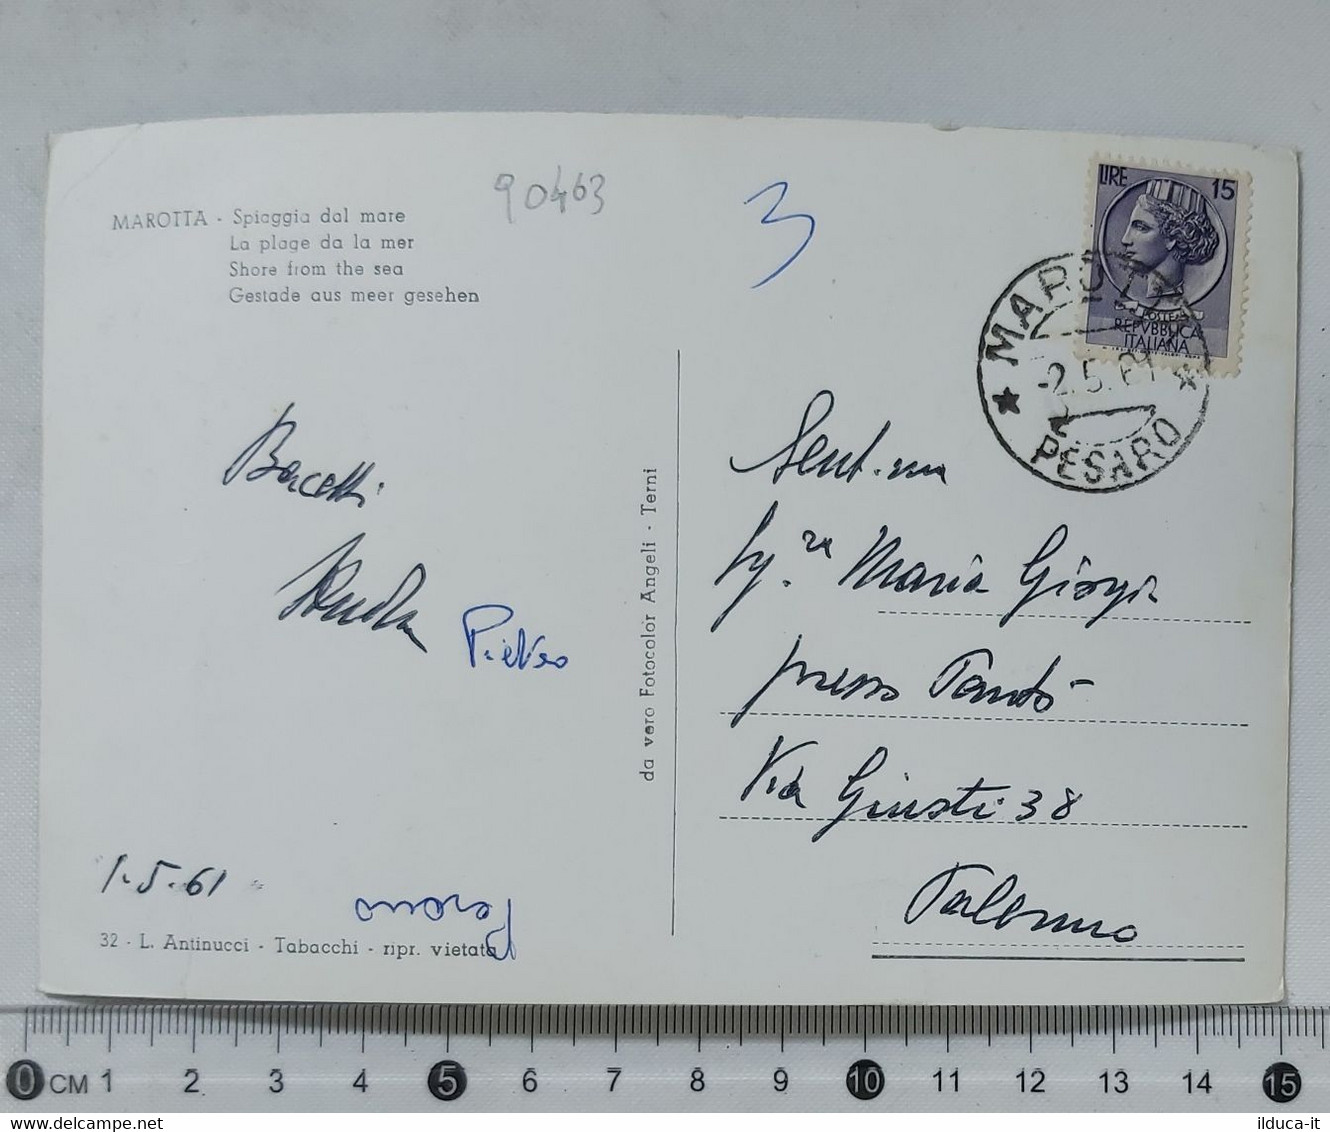 MAROTTA - Spiaggia dal mare
La plage da la mer
Shore from the sea
Gestade aus meer gesehen
90463
3
LIRE 15
POSTE
REPVBBLICA
ITALIANA
MAROTTA
-2.5.61
PESARO
Bacetti
Pietro
1.5.61
Perono
32 - L. Antinucci - Tabacchi - ripr. vietata
da vero Fotocolor Angeli - Terni
Gent.ma
Sig.ra Maria Giorgi
presso Tantò
Via Giusti 38
Palermo
0 CM 1 2 3 4 5 6 7 8 9 10 11 12 13 14 15
www.delcampe.net
ilduca-it